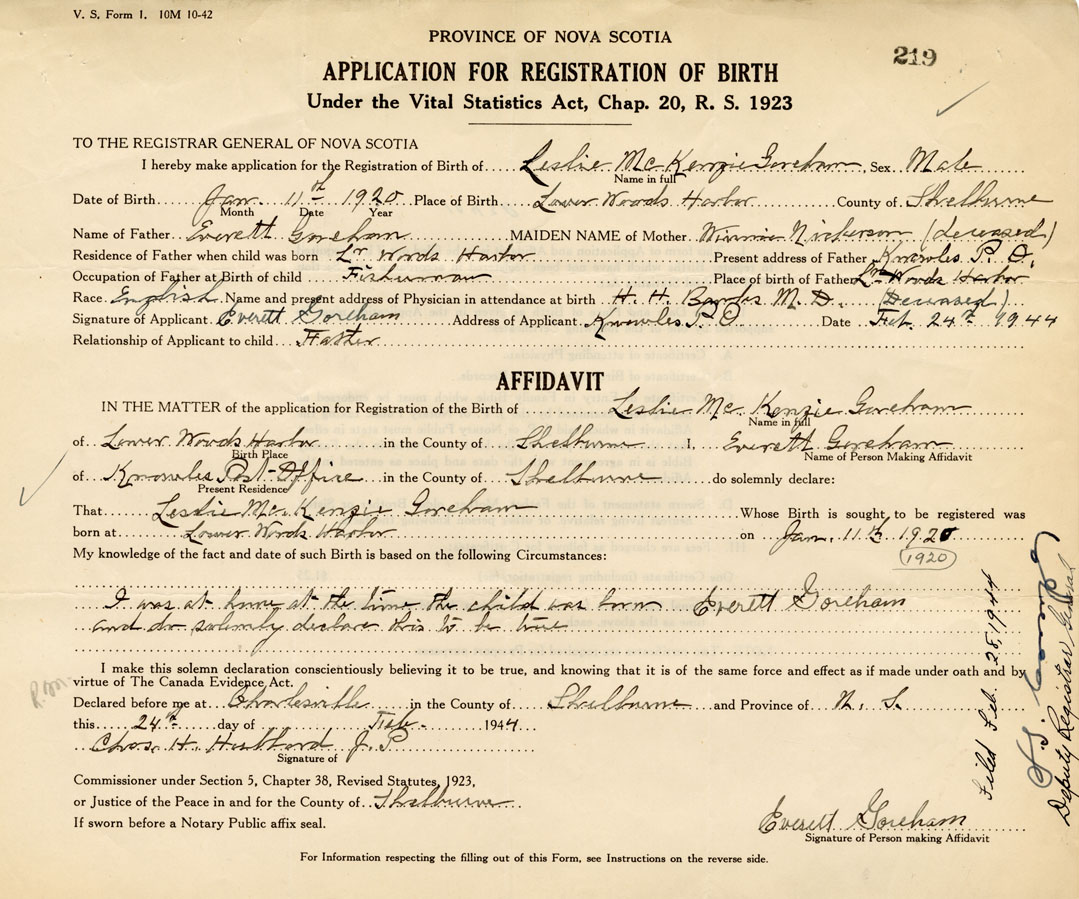 V. S. Form 1. 10M 10-42
PROVINCE OF NOVA SCOTIA
219
APPLICATION FOR REGISTRATION OF BIRTH
Under the Vital Statistics Act, Chap. 20, R. S. 1923
TO THE REGISTRAR GENERAL OF NOVA SCOTIA
I hereby make application for the Registration of Birth of Leslie Mc Kenzie Goreham Sex Male
Name in full
Date of Birth Jan 11th 1920 Place of Birth Lower Woods Harbor County of Shelburne
Month Date Year
Name of Father Everett Goreham MAIDEN NAME of Mother Winnie Nickerson (deceased)
Residence of Father when child was born Lr Words Harbor Present address of Father Knowles P. O.
Occupation of Father at Birth of child Fisherman Place of birth of Father Lr Words Harbor
Race English Name and present address of Physician in attendance at birth H. H. Banks M. D. (Deceased)
Signature of Applicant Everett Goreham Address of Applicant Knowles P. O Date Feb. 24th 1944
Relationship of Applicant to child Father
AFFIDAVIT
IN THE MATTER of the application for Registration of the Birth of Leslie Mc. Kenzie Goreham
Name in full
of Lower Woods Harbor in the County of Shelburne I, Everett Goreham
Birth Place Name of Person Making Affidavit
of Knowles Post-Office in the County of Shelburne do solemnly declare:
Present Residence
That Leslie Mc. Kenzie Goreham Whose Birth is sought to be registered was
born at Lower Words Harbor on Jan. 11th 1920
(1920)
My knowledge of the fact and date of such Birth is based on the following Circumstances:
I was at home at the time the child was born Everett Goreham
and do solemly declare this to be true
I make this solemn declaration conscientiously believing it to be true, and knowing that it is of the same force and effect as if made under oath and by
virtue of The Canada Evidence Act.
Declared before me at Charlesville in the County of Shelburne and Province of N. S.
this 24th day of Feb. 1944
Chas. H. Hubbard J. P
Signature of
Commissioner under Section 5, Chapter 38, Revised Statutes, 1923,
or Justice of the Peace in and for the County of Shelburne
If sworn before a Notary Public affix seal.
Everett Goreham
Signature of Person making Affidavit
For Information respecting the filling out of this Form, see Instructions on the reverse side.
Filed Feb. 28, 1944
Deputy Registrar General